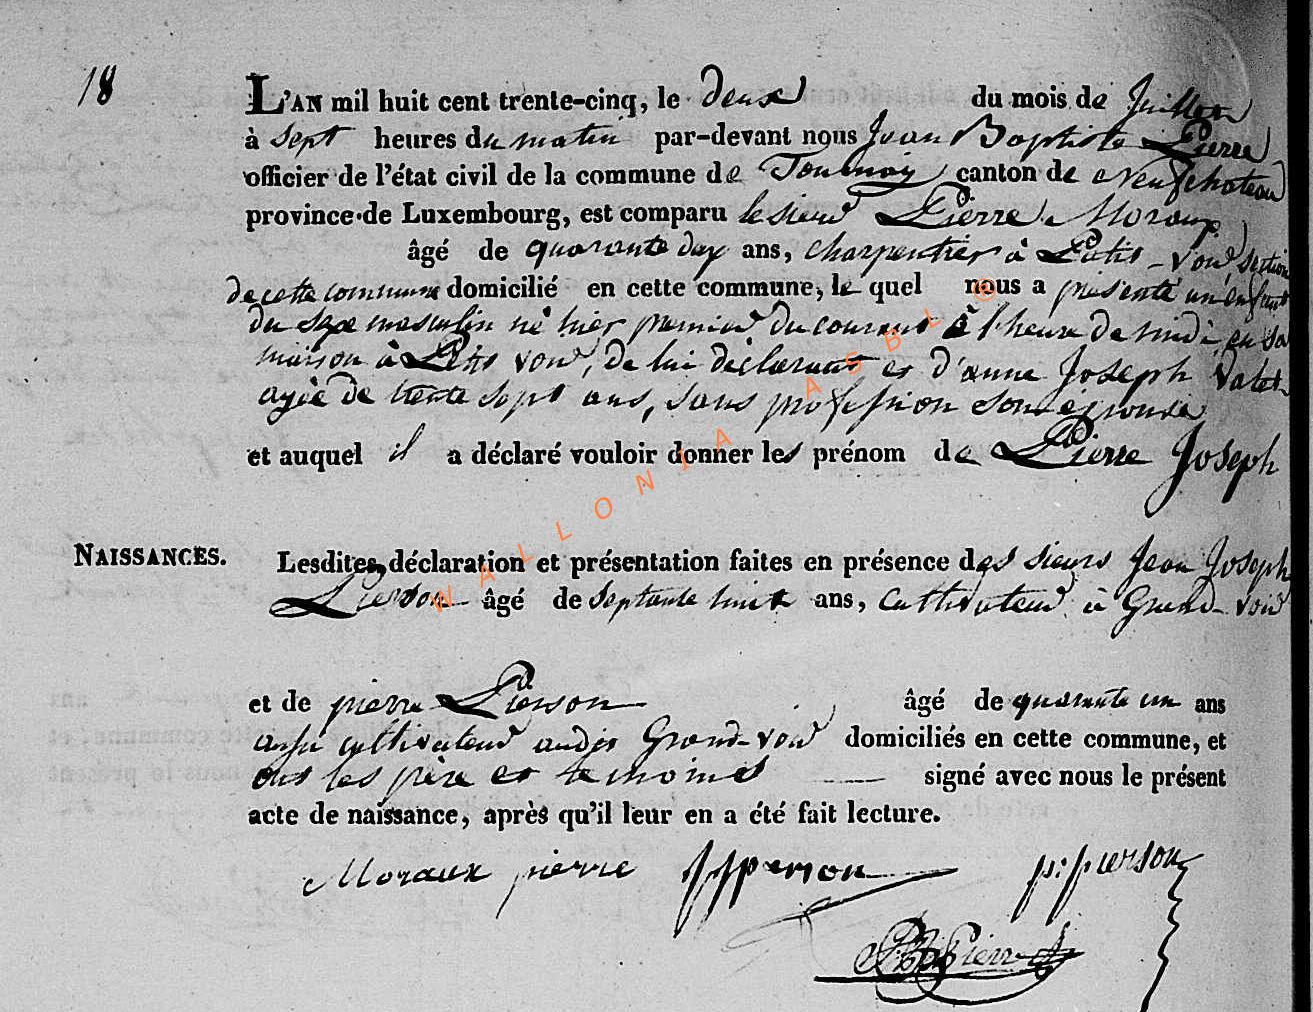 18
L'AN mil huit cent trente-cinq, le deux du mois de Juillet
à sept heures du matin par-devant nous Jean Baptiste Pierre
officier de l'état civil de la commune de Tournay canton de Neufchateau
province de Luxembourg, est comparu le sieur Pierre Moraux
âgé de quarante deux ans, charpentier à Petit-voir, section
de cette commune domicilié en cette commune, le quel nous a présenté un enfant
du sexe masculin né hier premier du courant à l'heure de midi, en sa
maison à Petit voir, de lui déclarant et d'anne Joseph Valet
agée de trente sept ans, sans profession son épouse
et auquel il a déclaré vouloir donner les prénom de Pierre Joseph
NAISSANCES.
Lesdites déclaration et présentation faites en présence des sieurs Jean Joseph
Pierson âgé de septante huit ans, cultivateur à Grand-voir
et de pierre Pierson âgé de quarante un ans
aussi cultivateur audit Grand-voir domiciliés en cette commune, et
ont les père et temoines signé avec nous le présent
acte de naissance, après qu'il leur en a été fait lecture.
Moraux pierre JJpierson p:pierson
JB Pierre
WALLONIA ASBL ®